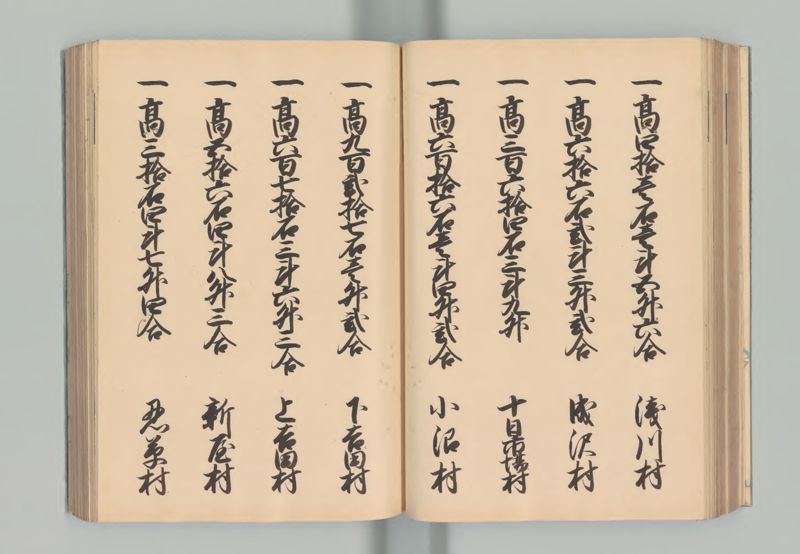 一 高四拾壱石壱斗五升六合 浅川村
一 高六拾六石弐斗三升弐合 成沢村
一 高三百六拾四石三斗九升 十日市場村
一 高六百拾六石壱斗四升弐合 小沼村
一 高九百弐拾七石壱升弐合 下吉田村
一 高六百七拾石三斗六升二合 上吉田村
一 高五拾六石四斗八升二合 新屋村
一 高二拾石四斗七升四合 忍草村